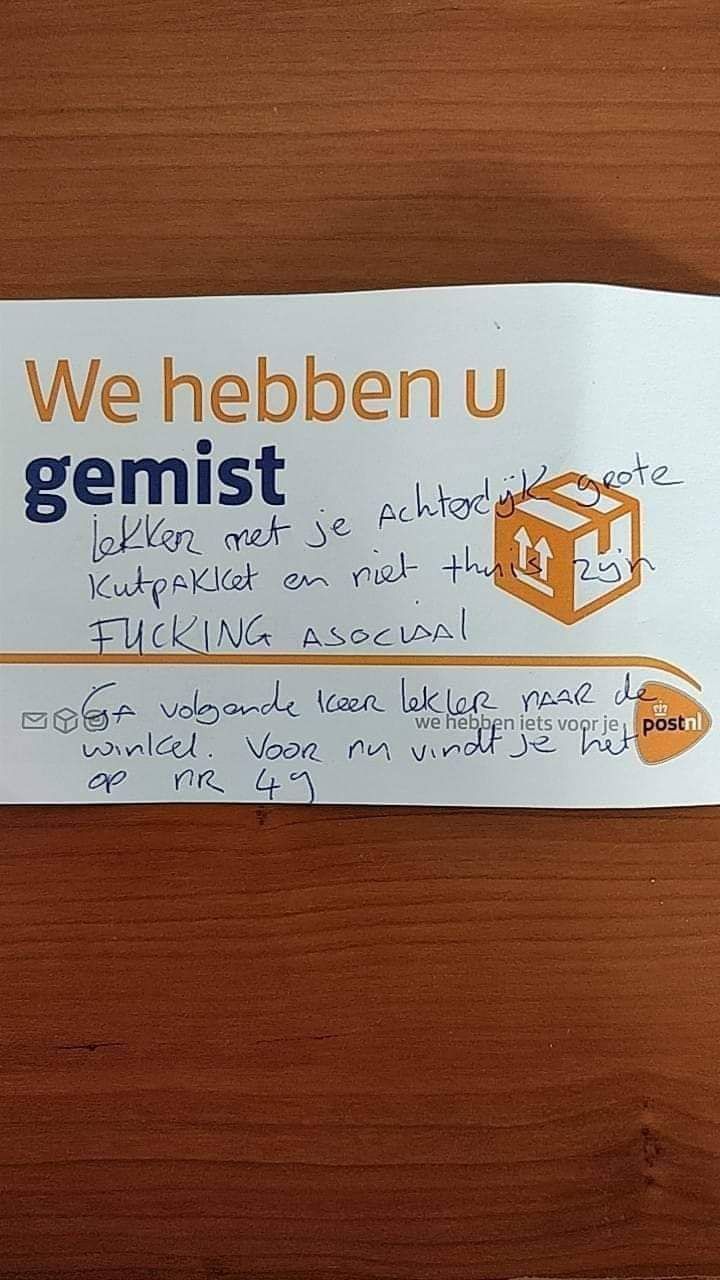 We hebben u
gemist
lekker met je Achterdijk grote
kutpakket en niet thuis zijn
FUCKING ASOCIAAL
Ga volgende keer lekker NAAR de
we hebben iets voor je
postnl
winkel. Voor nu vindt je het
op nR 49